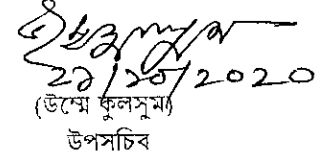 ২১/১০/2020
(উম্মে কুলসুম)
উপসচিব